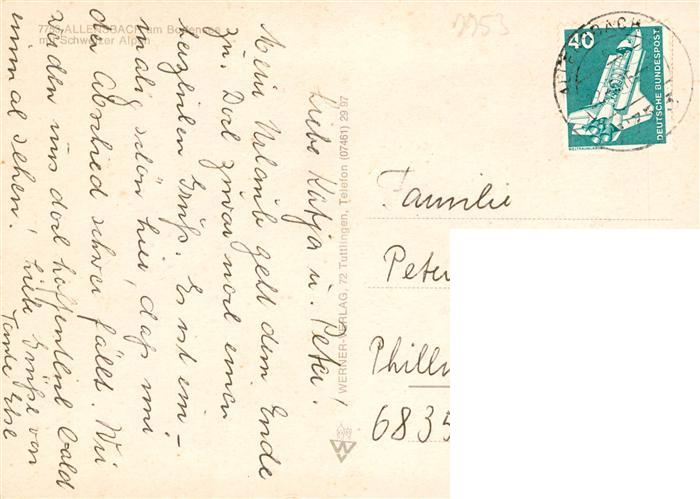 7753 ALLENSBACH am Bodensee
mit Schweizer Alpen
7753
Liebe Katja u. Peter!
Mein Urlaub geht dem Ende
zu. Doch zuvor noch einen
herzlichen Gruß. Es ist ein-
malig schön hier, daß mir
der Abschied schwer fällt. Wir
werden uns doch hoffentlich bald
einmal sehen!
Liebe Grüße von
Tante Else
WERNER-VERLAG, 72 Tuttlingen, Telefon (07461) 29 97
W
40
DEUTSCHE BUNDESPOST
WELTRAUMLABOR
ALLENSBACH
Familie
Peter
Phill
6835